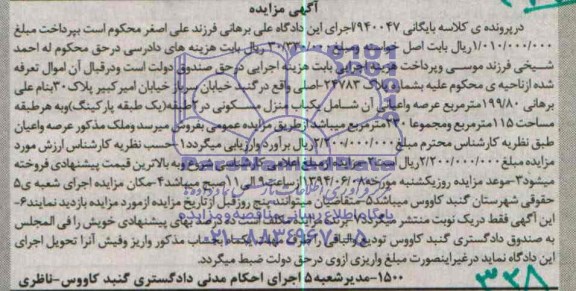 آگهی مزایده
درپرونده ی کلاسه بایگانی ۹۴۰۰۴۷/اجرای این دادگاه علی برهانی فرزند علی اصغر محکوم است بپرداخت مبلغ
۱/۰۱۰/۰۰۰/۰۰۰ریال بابت اصل خواسته ومبلغ ریال بابت هزینه های دادرسی درحق محکوم له احمد
شیخی فرزند موسی وپرداخت هزینه اجرایی بابت هزینه اجرایی درحق صندوق دولت است ودرقبال آن اموال تعرفه
شده ازناحیه ی محکوم علیه بشماره پلاک ۲۴۷۸۳-اصلی واقع درگنبد خیابان سرباز خیابان امیرکبیر پلاک ۳۰بنام علی
برهانی ۱۹۹/۸۰مترمربع عرصه واعیانی آن شامل یکباب منزل مسکونی در۲طبقه(یک طبقه پارکینگ)وبه هرطبقه
مساحت ۱۱۵مترمربع ومجموعا ۲۳۰مترمربع میباشد ازطریق مزایده عمومی بفروش میرسد وملک مذکور عرصه واعیان
طبق نظریه کارشناس محترم مبلغ ۲/۲۰۰/۰۰۰/۰۰۰ریال برآورد وارزیابی میگردد۱-حسب نظریه کارشناس ارزش مورد
مزایده مبلغ ۲/۲۰۰/۰۰۰/۰۰۰ریال است۲-مزایده ازمبلغ اعلامی کارشناسی شروع وبه بالاترین قیمت پیشنهادی فروخته
میشود۳-موعد مزایده روزیکشنبه مورخه ساعت ۹ الی ۱۱ صبح میباشد۴-مکان مزایده اجرای شعبه ی۵
حقوقی شهرستان گنبد کاووس میباشد۵-متقاضیان میتوانند پنج روزقبل ازتاریخ مزایده ازمورد مزایده بازدید نمایند۶-
این آگهی فقط دریک نوبت منتشر میگردد۷-برنده مزایده مکلف است ده درصد بهای پیشنهادی خویش را فی المجلس
به صندوق دادگستری گنبد کاووس تودیع والباقی را ظرف مهلت یکماه بحساب مذکور واریز وفیش آنرا تحویل اجرای
این دادگاه نماید درغیراینصورت مبلغ واریزی ازوی درحق دولت ضبط میگردد.
۱۵۰۰-مدیرشعبه ۵ اجرای احکام مدنی دادگستری گنبد کاووس-ناظری
۳۳۸
پایگاه اطلاع رسانی مناقصه و مزایده
۰۲۱-۸۸۳۴۹۶۷۰-۵